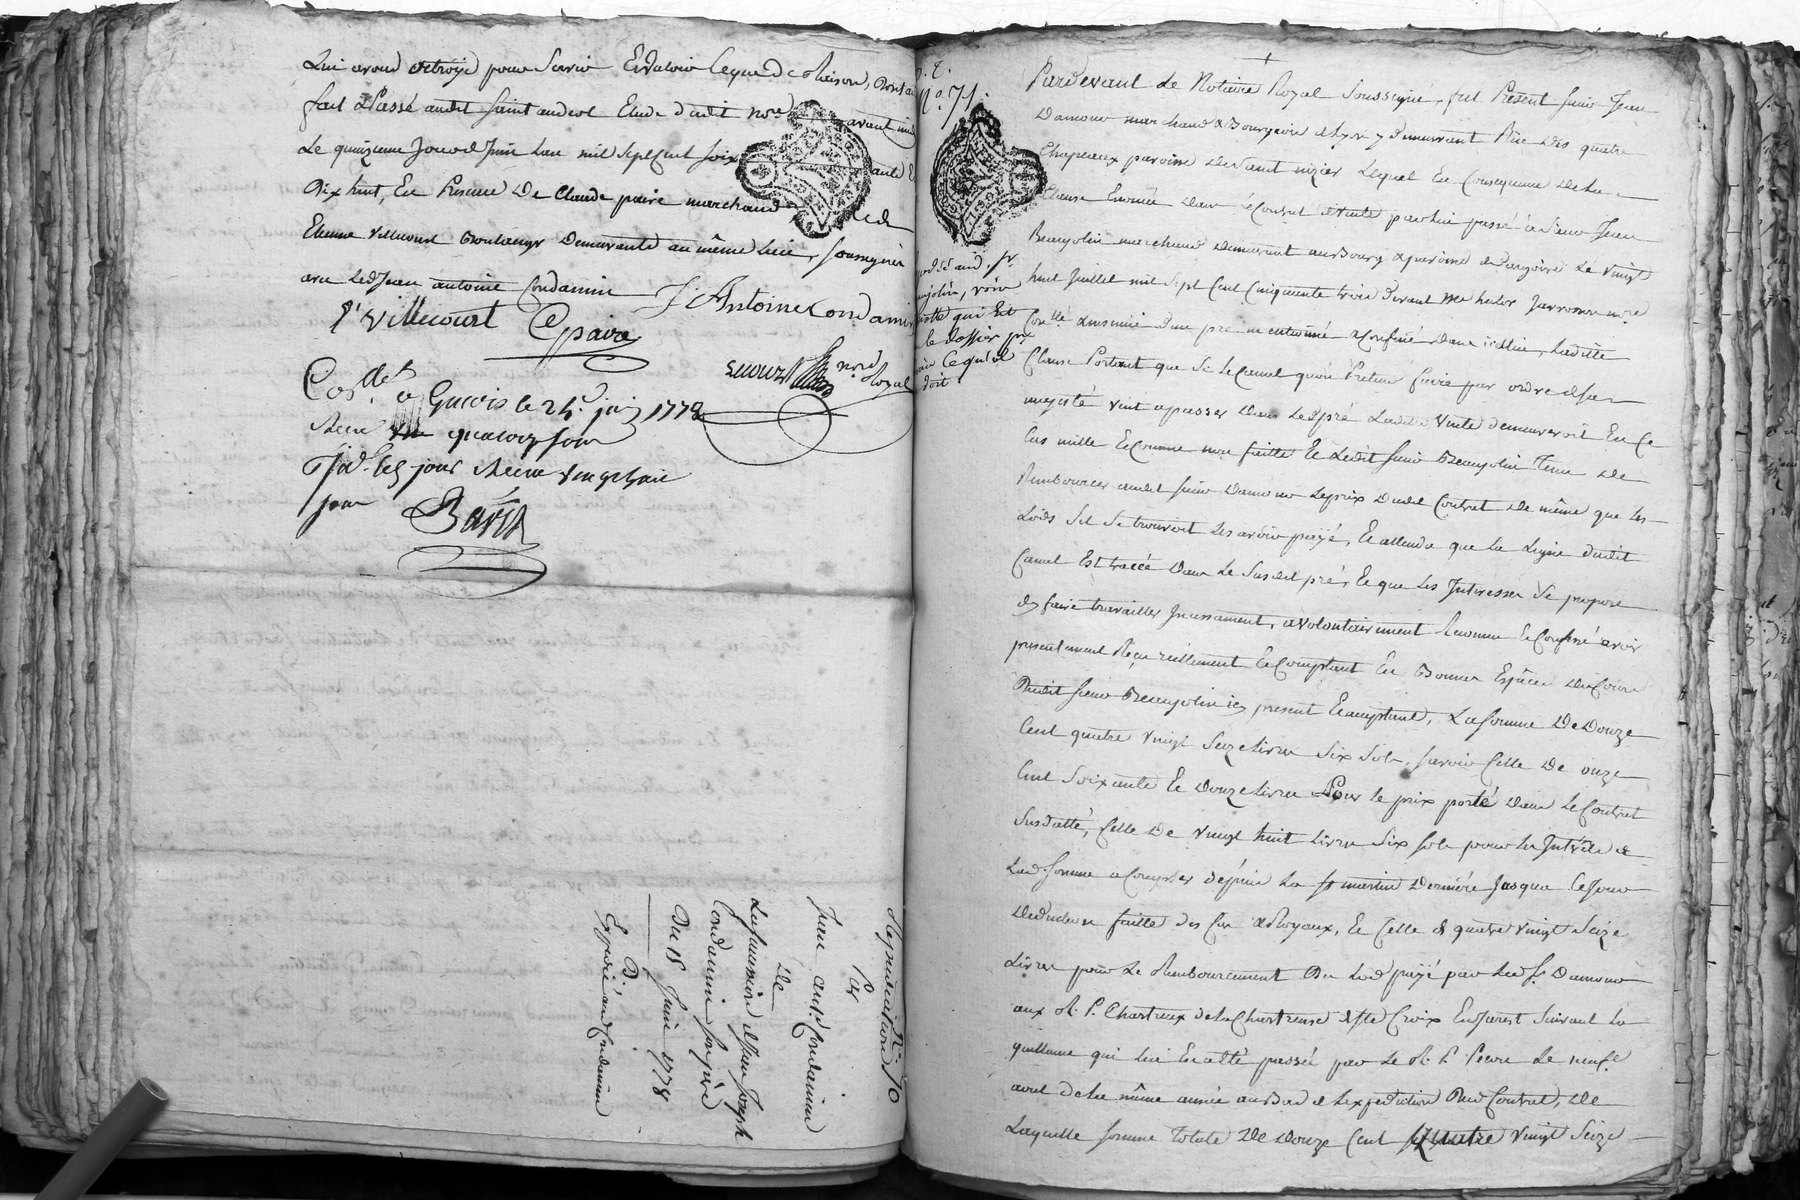 Lui avoud octroyé pour servir Et valoir ce que de Raison, dont acte
fait & Passé audit saint andeol Etude dudit nore avant midi
Le quinzieme Jour de Juin lan mil sept cent soixante Et
Dix huit, En Presence De Claude paire marchand Et de
Etienne Villecourt Boulanger Demeurants au même lieu, soussignés
avec Ledt Jean antoine Condamin J: Antoine Condamin
E' Villecourt C paire
nore Royal
Con.lé à Givors le 24e juin 1778
Recu quatorze sous
Jd. les jour Recu vingt trois
sous
N° 70
Repudiation
Par
Jean ant.e Condamin
de
La succession de sieur Joseph
Condamin son père
Du 15 Juin 1778
E. D.
Expedié aud. Condamin
N° 71.
Pardevant Le Notaire Royal soussigné, fut Présent sieur Jean
Damour marchand & Bourgeois de Lyon y Demeurant Rüe des quatre
Chapeaux paroisse de Saint nizier Lequel En Consequence de la
Clause Enoncée dans le Contrat de vente par lui passé à sieur Jean
Beaujolin marchand Demeurant au Bourg & paroisse de Dargoire Le vingt
huit Juillet mil sept Cent Cinquante trois devant Me Jarrosson nore
Con.lé & insinué D'un pré mentionné & Confiné dans icelui, Ladite
Clause Portant que Si le Canal qu'on Pretend faire par ordre de sa
majesté vient a passer dans Ledt pré Ladite vente demeureroit En ce
Cas nulle Et Comme non faitte Et Ledit sieur Beaujolin Tenu de
Rembourcer audit sieur Damour Le prix Dudit Contrat de même que les
Lods S'il Se trouvoit les avoir payé, Et attendu que La Ligne dudit
Canal Est tracée dans Le Susdit pré, Et que Les Interessés Se propose
dy faire travailler Incessament, a volontairement Reconnu & Confessé avoir
presentement Reçu reellement Et Comptant En Bonnes Espèces du Cours
Dudit sieur Beaujolin icy present Et acceptant, La somme De Douze
Cent quatre vingt Seize livres Six Sols, savoir Celle de onze
Cent Soixante Et Douze livres Pour le prix porté dans Le Contrat
Susdatté, Celle De vingt huit Livres Six sols pour les Intérêts de
Lad. somme a Compter depuis La st martin Dernière Jusqu'a Ce Jour
Deduction faitte des Royaux, Et Celle de quatre vingt Seize
Livres pour Le Rembourcement Du Lod payé par Led. sr Damour
aux R. P. Chartreux de la Chartreuse de Ste Croix En Jarest Suivant La
quittance qui lui En a été passée par Le R. P. Le neuf
avril de la même année au Bas de L'expedition Dud. Contrat, De
Laquelle somme totale De Douze Cent quatre vingt Seize